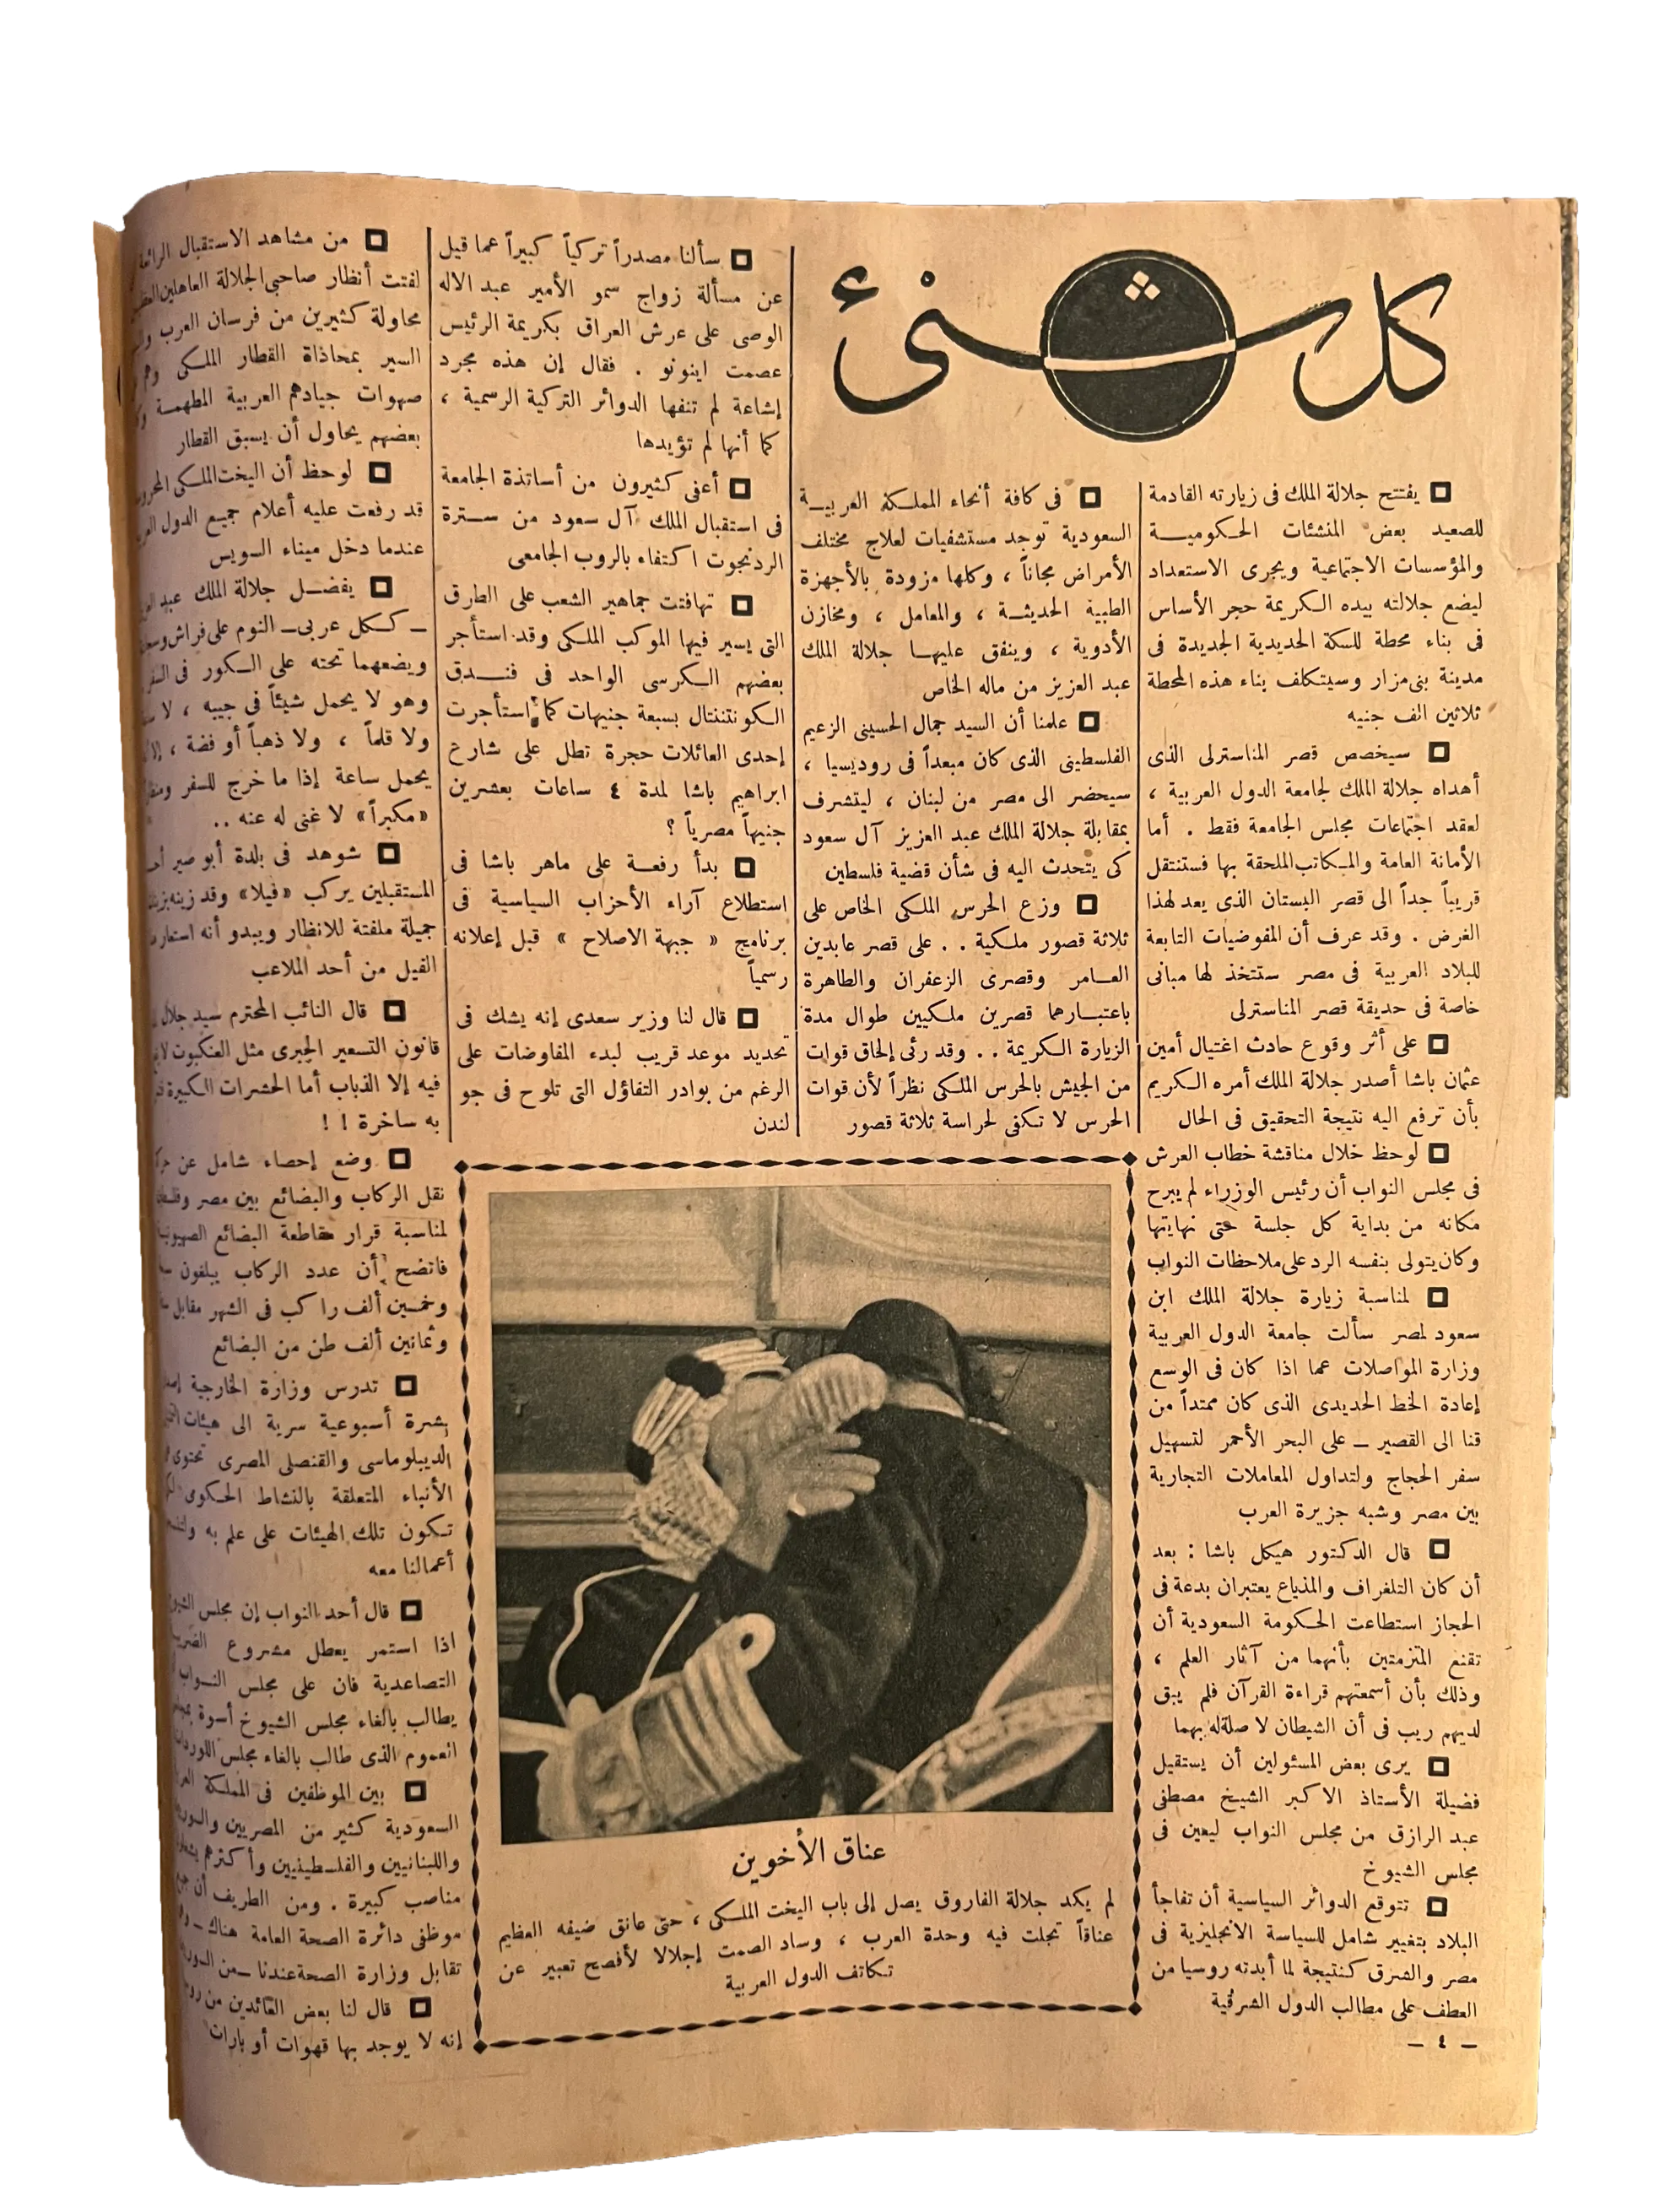 كل شئ
يفتتح جلالة الملك فى زيارته القادمة
للصعيد بعض المنشئات الحكومية
والمؤسسات الاجتماعية ويجرى الاستعداد
ليضع جلالته بيده الكريمة حجر الأساس
فى بناء محطة للسكة الحديدية الجديدة فى
مدينة بنى مزار وسيتكلف بناء هذه المحطة
ثلاثين الف جنيه
سيخصص قصر المناسترلى الذى
أهداه جلالة الملك لجامعة الدول العربية ،
لعقد اجتماعات مجلس الجامعة فقط . أما
الأمانة العامة والمكاتب الملحقة بها فستنتقل
قريباً جداً الى قصر البستان الذى يعد لهذا
الغرض . وقد عرف أن المفوضيات التابعة
للبلاد العربية فى مصر ستتخذ لها مبانى
خاصة فى حديقة قصر المناسترلى
على أثر وقوع حادث اغتيال أمين
عثمان باشا أصدر جلالة الملك أمره الكريم
بأن ترفع اليه نتيجة التحقيق فى الحال
لوحظ خلال مناقشة خطاب العرش
فى مجلس النواب أن رئيس الوزراء لم يبرح
مكانه من بداية كل جلسة حتى نهايتها
وكان يتولى بنفسه الرد على ملاحظات النواب
لمناسبة زيارة جلالة الملك ابن
سعود لمصر سألت جامعة الدول العربية
وزارة المواصلات عما اذا كان فى الوسع
إعادة الخط الحديدى الذى كان ممتداً من
قنا الى القصير ــ على البحر الأحمر لتسهيل
سفر الحجاج ولتداول المعاملات التجارية
بين مصر وشبه جزيرة العرب
قال الدكتور هيكل باشا : بعد
أن كان التلغراف والمذياع يعتبران بدعة فى
الحجاز استطاعت الحكومة السعودية أن
تقنع المتزمتين بأنهما من آثار العلم ،
وذلك بأن أسمعتهم قراءة القرآن فلم يبق
لديهم ريب فى أن الشيطان لا صلة له بهما
يرى بعض المسئولين أن يستقيل
فضيلة الأستاذ الاكبر الشيخ مصطفى
عبد الرازق من مجلس النواب ليعين فى
مجلس الشيوخ
تتوقع الدوائر السياسية أن تفاجأ
البلاد بتغيير شامل للسياسة الانجليزية فى
مصر والشرق كنتيجة لما أبدته روسيا من
العطف على مطالب الدول الشرقية
ــ ٤ ــ
فى كافة أنحاء المملكة العربية
السعودية توجد مستشفيات لعلاج مختلف
الأمراض مجاناً ، وكلها مزودة بالأجهزة
الطبية الحديثة ، والمعامل ، ومخازن
الأدوية ، وينفق عليها جلالة الملك
عبد العزيز من ماله الخاص
علمنا أن السيد جمال الحسينى الزعيم
الفلسطينى الذى كان مبعداً فى روديسيا ،
سيحضر الى مصر من لبنان ، ليتشرف
بمقابلة جلالة الملك عبد العزيز آل سعود
كى يتحدث اليه فى شأن قضية فلسطين
وزع الحرس الملكى الخاص على
ثلاثة قصور ملكية . . على قصر عابدين
العامر وقصرى الزعفران والطاهرة
باعتبارهما قصرين ملكيين طوال مدة
الزيارة الكريمة . . وقد رئى إلحاق قوات
من الجيش بالحرس الملكى نظراً لأن قوات
الحرس لا تكفى لحراسة ثلاثة قصور
سألنا مصدراً تركياً كبيراً عما قيل
عن مسألة زواج سمو الأمير عبد الاله
الوصى على عرش العراق بكريمة الرئيس
عصمت اينونو . فقال إن هذه مجرد
إشاعة لم تنفها الدوائر التركية الرسمية ،
كما أنها لم تؤيدها
أعفى كثيرون من أساتذة الجامعة
فى استقبال الملك آل سعود من سترة
الردنجوت اكتفاء بالروب الجامعى
تهافتت جماهير الشعب على الطرق
التى يسير فيها الموكب الملكى وقد استأجر
بعضهم الكرسى الواحد فى فندق
الكونتننتال بسبعة جنيهات كما استأجرت
إحدى العائلات حجرة تطل على شارع
ابراهيم باشا لمدة ٤ ساعات بعشرين
جنيهاً مصرياً ؟
بدأ رفعة على ماهر باشا فى
استطلاع آراء الأحزاب السياسية فى
برنامج « جبهة الاصلاح » قبل إعلانه
رسمياً
قال لنا وزير سعدى إنه يشك فى
تحديد موعد قريب لبدء المفاوضات على
الرغم من بوادر التفاؤل التى تلوح فى جو
لندن
عناق الأخوين
لم يكد جلالة الفاروق يصل إلى باب اليخت الملكى ، حتى عانق ضيفه العظيم
عناقاً تجلت فيه وحدة العرب ، وساد الصمت إجلالا لأفصح تعبير عن
تكاتف الدول العربية
من مشاهد الاستقبال الرائعة
لفتت أنظار صاحبى الجلالة العاهلين
محاولة كثيرين من فرسان العرب
السير بمحاذاة القطار الملكى وهم
صهوات جيادهم العربية المطهمة
بعضهم يحاول أن يسبق القطار
لوحظ أن اليخت الملكى
قد رفعت عليه أعلام جميع الدول
عندما دخل ميناء السويس
يفضل جلالة الملك عبد
ــ ككل عربى ــ النوم على فراش
ويضعهما تحته على الكور فى
وهو لا يحمل شيئاً فى جيبه ، لا
ولا قلماً ، ولا ذهباً أو فضة ،
يحمل ساعة إذا ما خرج للسفر
«مكبراً» لا غنى له عنه ..
شوهد فى بلدة أبو صير
المستقبلين يركب «فيلا» وقد زينه
جميلة ملفتة للانظار ويبدو أنه
الفيل من أحد الملاعب
قال النائب المحترم سيد جلال
قانون التسعير الجبرى مثل العنكبوت
فيه إلا الذباب أما الحشرات الكبيرة
به ساخرة ! !
وضع إحصاء شامل عن
نقل الركاب والبضائع بين مصر
لمناسبة قرار مقاطعة البضائع
فاتضح أن عدد الركاب يبلغون
وخمسين ألف راكب فى الشهر مقابل
وثمانين ألف طن من البضائع
تدرس وزارة الخارجية
نشرة أسبوعية سرية الى هيئات
الديبلوماسى والقنصلى المصرى تحتوى
الأنباء المتعلقة بالنشاط الحكومى
تكون تلك الهيئات على علم به
أعمالنا معه
قال أحد النواب إن مجلس
اذا استمر يعطل مشروع
التصاعدية فان على مجلس النواب
يطالب بالغاء مجلس الشيوخ أسوة
العموم الذى طالب بالغاء مجلس
بين الموظفين فى المملكة
السعودية كثير من المصريين
واللبنانيين والفلسطينيين وأكثرهم
مناصب كبيرة . ومن الطريف أن
موظفى دائرة الصحة العامة هناك ــ
تقابل وزارة الصحة عندنا ــ من
قال لنا بعض العائدين من
إنه لا يوجد بها قهوات أو بارات